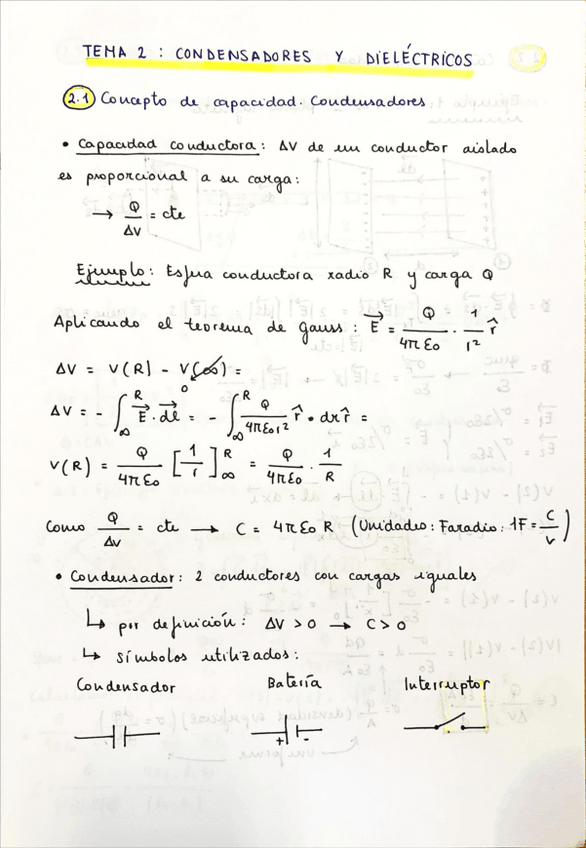 TEMA 2 : CONDENSADORES Y DIELÉCTRICOS
2.1 Concepto de capacidad. Condensadores.
• Capacidad conductora: ΔV de un conductor aislado
es proporcional a su carga:
→ Q/ΔV = cte
Ejemplo: Esfera conductora radio R y carga Q
Aplicando el teorema de Gauss: E⃗ = Q/(4π ε0) · 1/r² r̂
ΔV = V(R) - V(∞) = 0
ΔV = - ∫_∞^R E⃗ · dl⃗ = - ∫_∞^R Q/(4π ε0 r²) r̂ • dr r̂ =
V(R) = Q/(4π ε0) [1/r]_∞^R = Q/(4π ε0) · 1/R
Como Q/ΔV = cte → C = 4π ε0 R (Unidades: Faradio: 1F = C/V)
• Condensador: 2 conductores con cargas iguales
↳ por definición: ΔV > 0 → C > 0
↳ símbolos utilizados:
Condensador Batería Interruptor
+ -